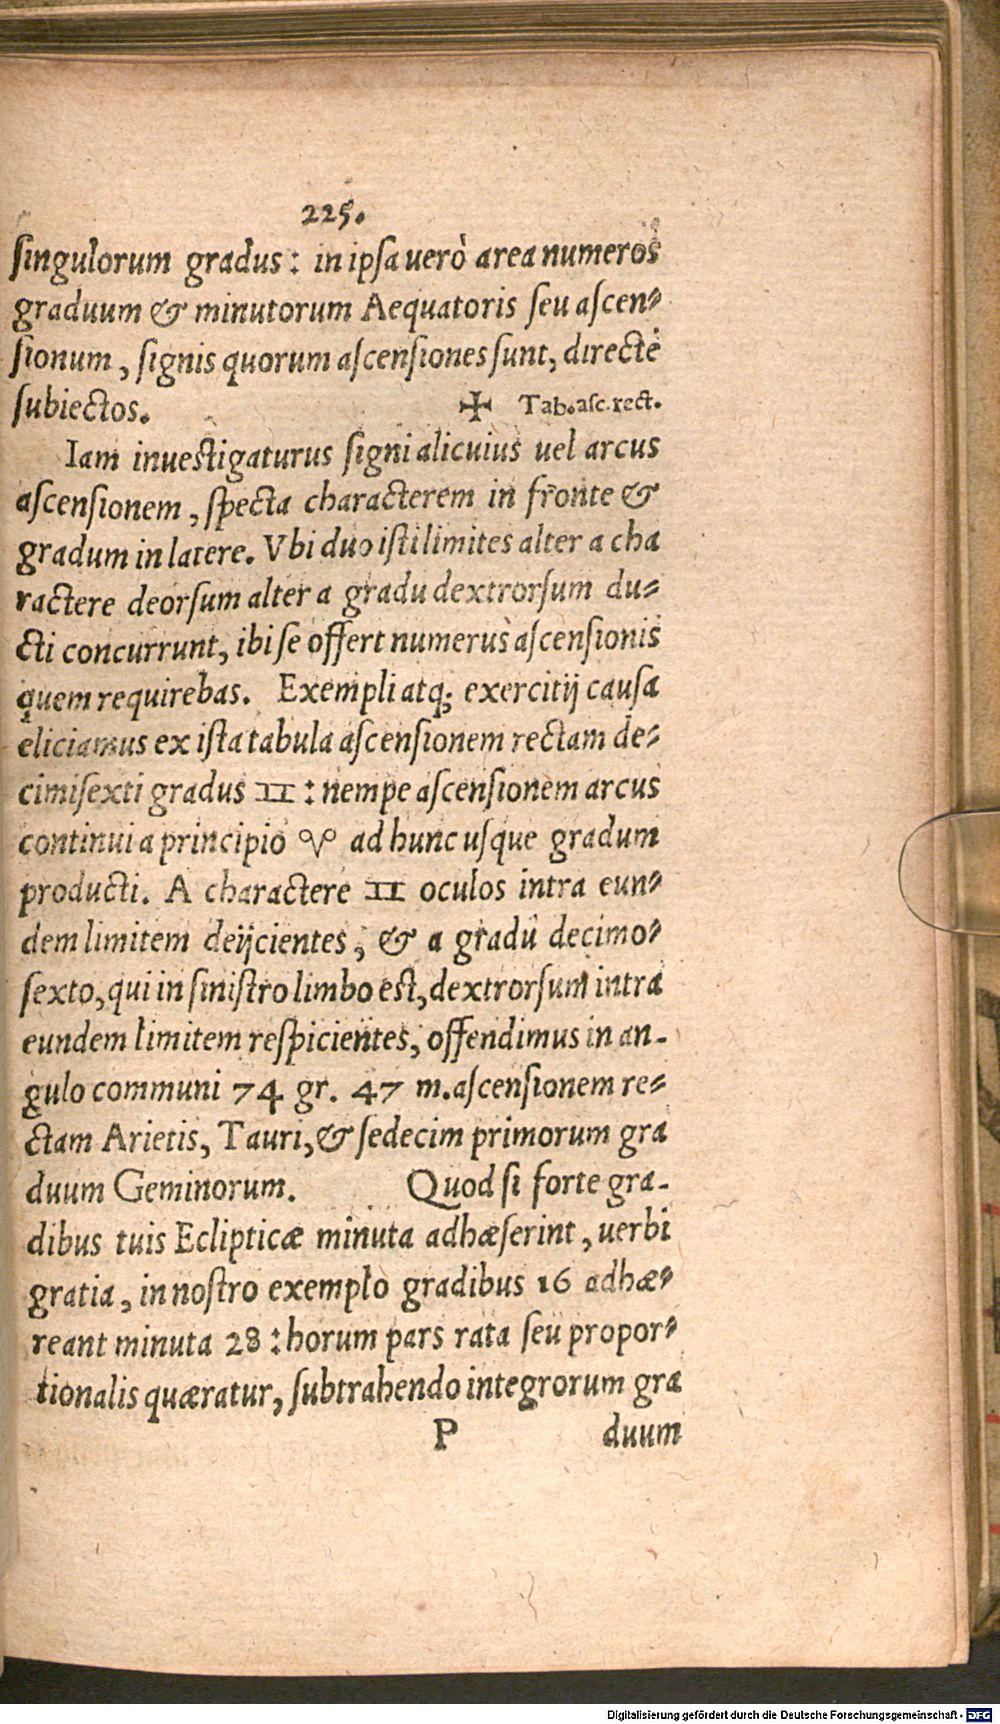 225.
singulorum gradus: in ipsa uerò area numeros
graduum & minutorum Aequatoris seu ascen-
sionum, signis quorum ascensiones sunt, directè
subiectos. ✠ Tab. asc. rect.
Iam inuestigaturus signi alicuius uel arcus
ascensionem, specta characterem in fronte &
gradum in latere. Vbi duo isti limites alter a cha
ractere deorsum alter a gradu dextrorsum du-
cti concurrunt, ibi se offert numerus ascensionis
quem requirebas. Exempli atq; exercitij causa
eliciamus ex ista tabula ascensionem rectam de-
cimisexti gradus ♊: nempe ascensionem arcus
continui a principio ♈ ad hunc usque gradum
producti. A charactere ♊ oculos intra eun-
dem limitem deijcientes, & a gradu decimo-
sexto, qui in sinistro limbo est, dextrorsum intra
eundem limitem respicientes, offendimus in an-
gulo communi 74 gr. 47 m. ascensionem re-
ctam Arietis, Tauri, & sedecim primorum gra
duum Geminorum. Quod si forte gra-
dibus tuis Eclipticæ minuta adhæserint, uerbi
gratia, in nostro exemplo gradibus 16 adhæ-
reant minuta 28: horum pars rata seu propor-
tionalis quæratur, subtrahendo integrorum gra
P duum
Digitalisierung gefördert durch die Deutsche Forschungsgemeinschaft - DFG